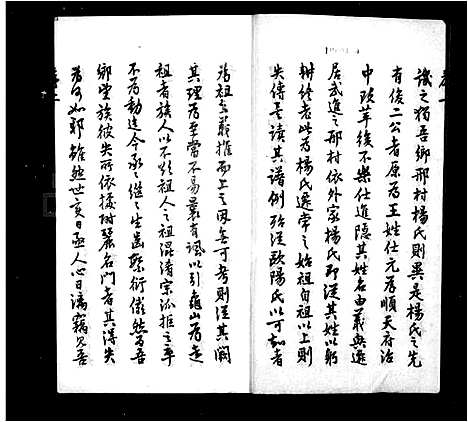 譏之獨吾鄉邢村楊氏則異是楊氏之先
有俊二公者原為王姓仕元為順天府治
中璜革後不樂仕進隱其姓名由義興遷
居武進之邢村依外家楊氏即從其姓以躬
耕終老此為楊氏遷常之始祖自祖以上則
失傳是譜其譜例殆從歐陽氏以可知者
為祖之義推而上之因無可考則從其闕
其理為至當不易最有識以引龜山為遠
祖者族人以不欲祖人之祖混淆宗派推之卒
不為動迄今承之繼之生齒繁衍儼然為吾
鄉望族彼失所依據附麗名門者其得失
為何如耶雖然世變日亟人心日漓竊見吾